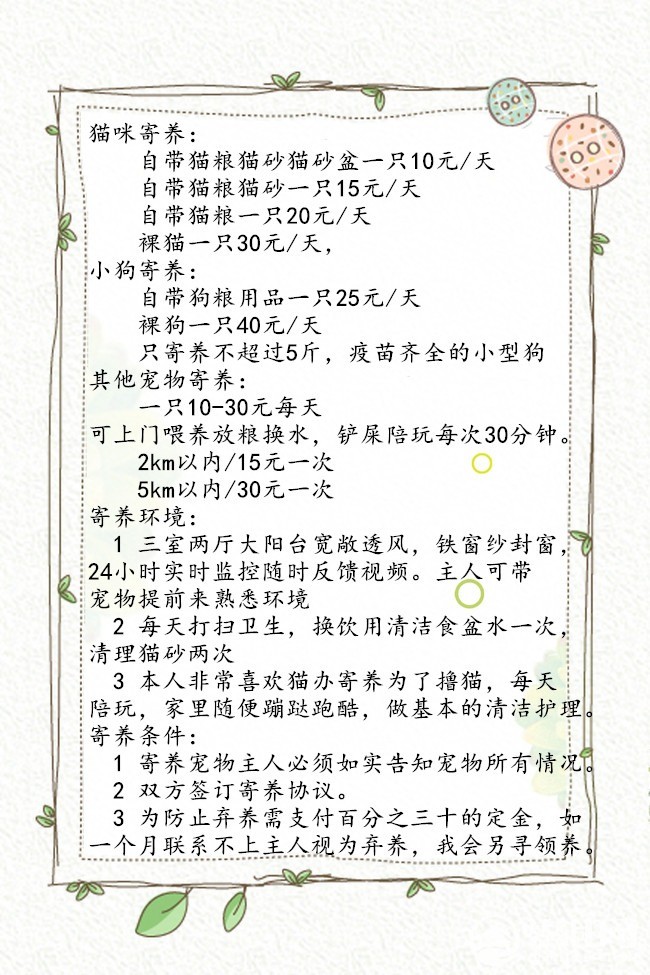 猫咪寄养：
自带猫粮猫砂猫砂盆一只10元/天
自带猫粮猫砂一只15元/天
自带猫粮一只20元/天
裸猫一只30元/天，
小狗寄养：
自带狗粮用品一只25元/天
裸狗一只40元/天
只寄养不超过5斤，疫苗齐全的小型狗
其他宠物寄养：
一只10-30元每天
可上门喂养放粮换水，铲屎陪玩每次30分钟。
2km以内/15元一次
5km以内/30元一次
寄养环境：
1 三室两厅大阳台宽敞透风，铁窗纱封窗，
24小时实时监控随时反馈视频。主人可带
宠物提前来熟悉环境
2 每天打扫卫生，换饮用清洁食盆水一次，
清理猫砂两次
3 本人非常喜欢猫办寄养为了撸猫，每天
陪玩，家里随便蹦跶跑酷，做基本的清洁护理。
寄养条件：
1 寄养宠物主人必须如实告知宠物所有情况。
2 双方签订寄养协议。
3 为防止弃养需支付百分之三十的定金，如
一个月联系不上主人视为弃养，我会另寻领养。